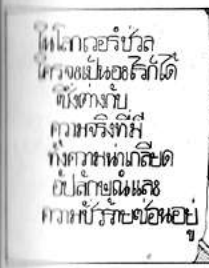 ในโลกเวอร์ชวล
ใครจะเป็นอะไรก็ได้
ซึ่งต่างกับ
ความจริงที่มี
ทั้งความน่าเกลียด
อัปลักษณ์และ
ความชั่วร้ายซ่อนอยู่